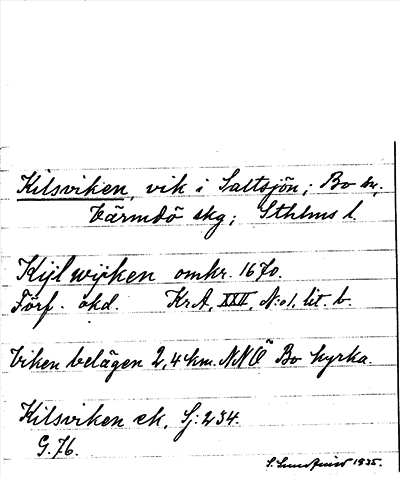 Kilsviken, vik i Saltsjön; Bo sn,
Värmdö skg; Sthlms l.
Kijl wijken omkr. 1670.
Förf. okd. KrA, XXII, N:o1, lit. b.
Viken belägen 2,4 km. NNÖ Bo kyrka.
Kilsviken ek. Sj: 234.
G. 76.
S. Sundqvist 1935.